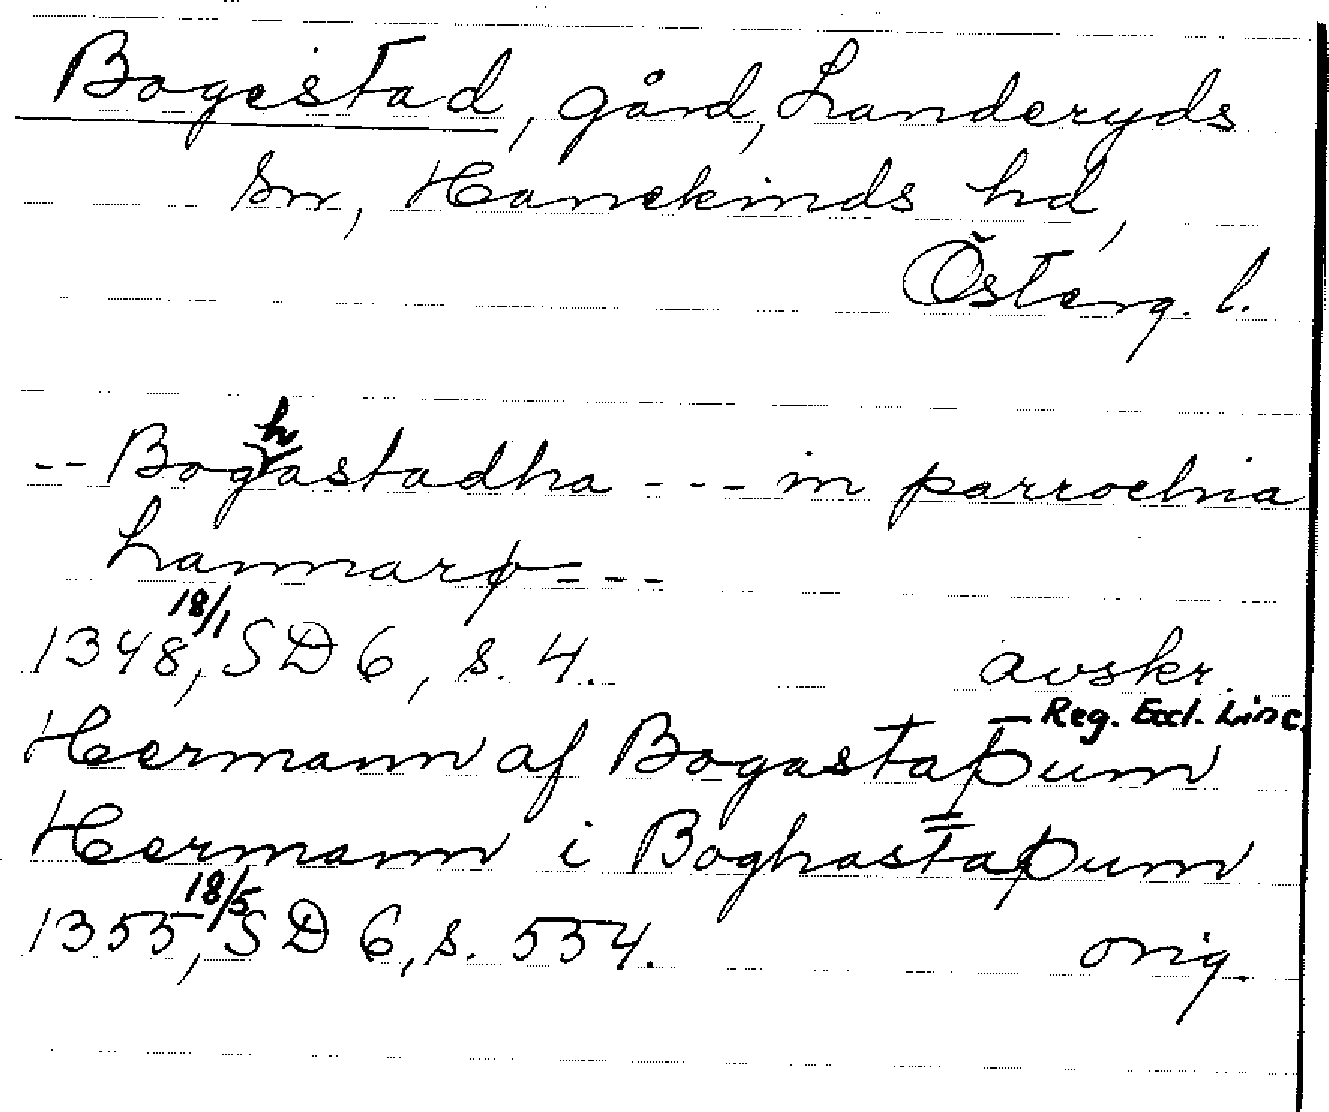 Bogestad, gård, Landeryds
sn, Hanekinds hd,
Österg. l.
-- Boghastadha --- in parrochia
Lannarþ ---
1348 18/1, SD 6, s. 4. avskr.
— Reg. Eccl. Linc.
Hermann af Bogastaþum
Hermann i Boghastaþum
1355 18/5, SD 6, s. 554. orig.